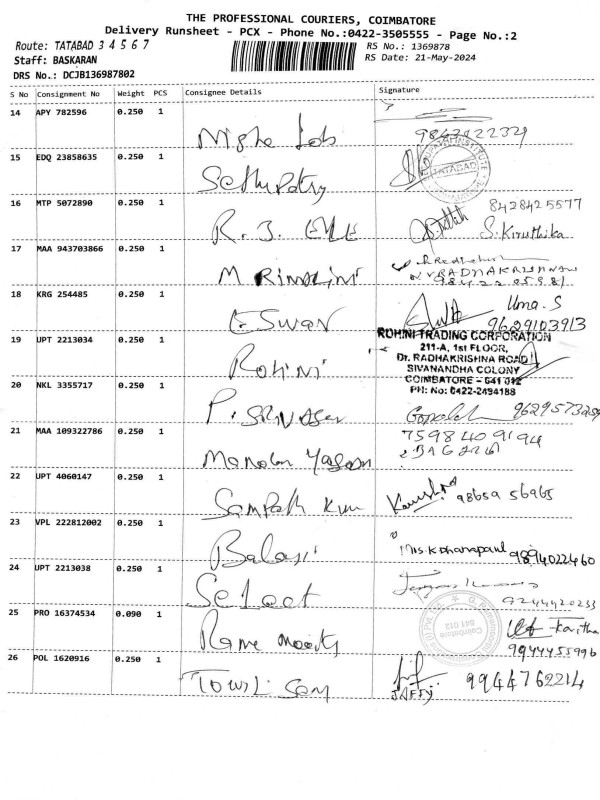 THE PROFESSIONAL COURIERS, COIMBATORE
Delivery Runsheet - PCX - Phone No.:0422-3505555 - Page No.:2
Route: TATABAD 3 4 5 6 7
RS No.: 1369878
Staff: BASKARAN
RS Date: 21-May-2024
DRS No.: DCJB136987802
S No Consignment No Weight PCS Consignee Details Signature
14 APY 782596 0.250 1
9843022321
15 EDQ 23858635 0.250 1
TATABAD
16 MTP 5072890 0.250 1 8428425577
R. J. S. Kiruthika
17 MAA 943703866 0.250 1
M
18 KRG 254485 0.250 1 Uma. S
ESWAR 9629103913
19 UPT 2213034 0.250 1 ROHINI TRADING CORPORATION
211-A, 1st FLOOR,
Dr. RADHAKRISHNA ROAD
Rohini SIVANANDHA COLONY
COIMBATORE - 641 012
20 NKL 3355717 0.250 1 PH: No: 0422-2494188
P.
21 MAA 109322786 0.250 1 7598409194
22 UPT 4060147 0.250 1
Sampath Kum 98659 56965
23 VPL 222812002 0.250 1
Balaji 9894022460
24 UPT 2213038 0.250 1
Select 9244420233
25 PRO 16374534 0.090 1
Coimbatore
641 012
Rame Kavitha
9944455996
26 POL 1620916 0.250 1
JAFFY 9944762214